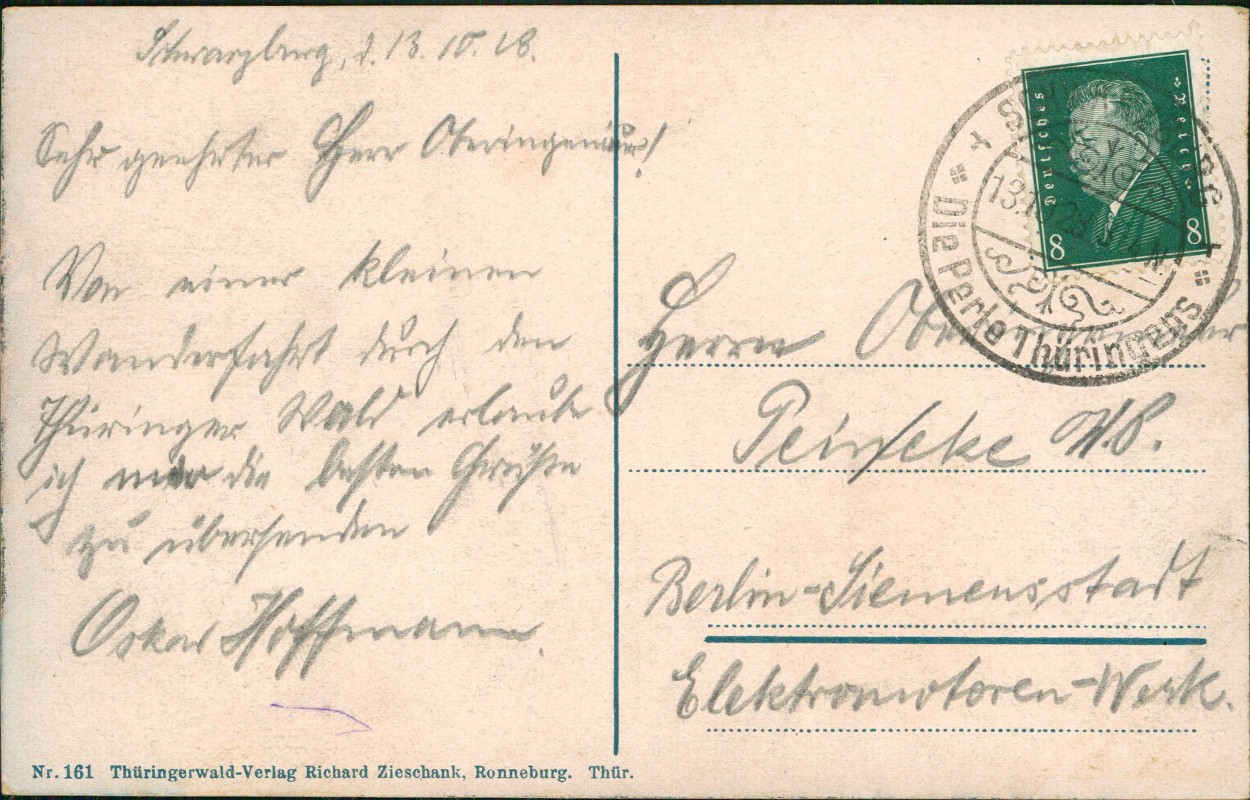 Schwarzburg, d. 13.10.28.
Sehr geehrter Herr Oberingeniör!
Von einer kleinen
Wanderfahrt durch den
Thüringer Wald erlaube
ich mir die besten Grüße
zu übersenden
Oskar Hoffmann.
Nr. 161 Thüringerwald-Verlag Richard Zieschank, Ronneburg. Thür.
Deutsches Reich
8 8
13.10.28
Die Perle Thüringens
Herrn
Berlin-Siemensstadt
Elektromotoren-Werk.